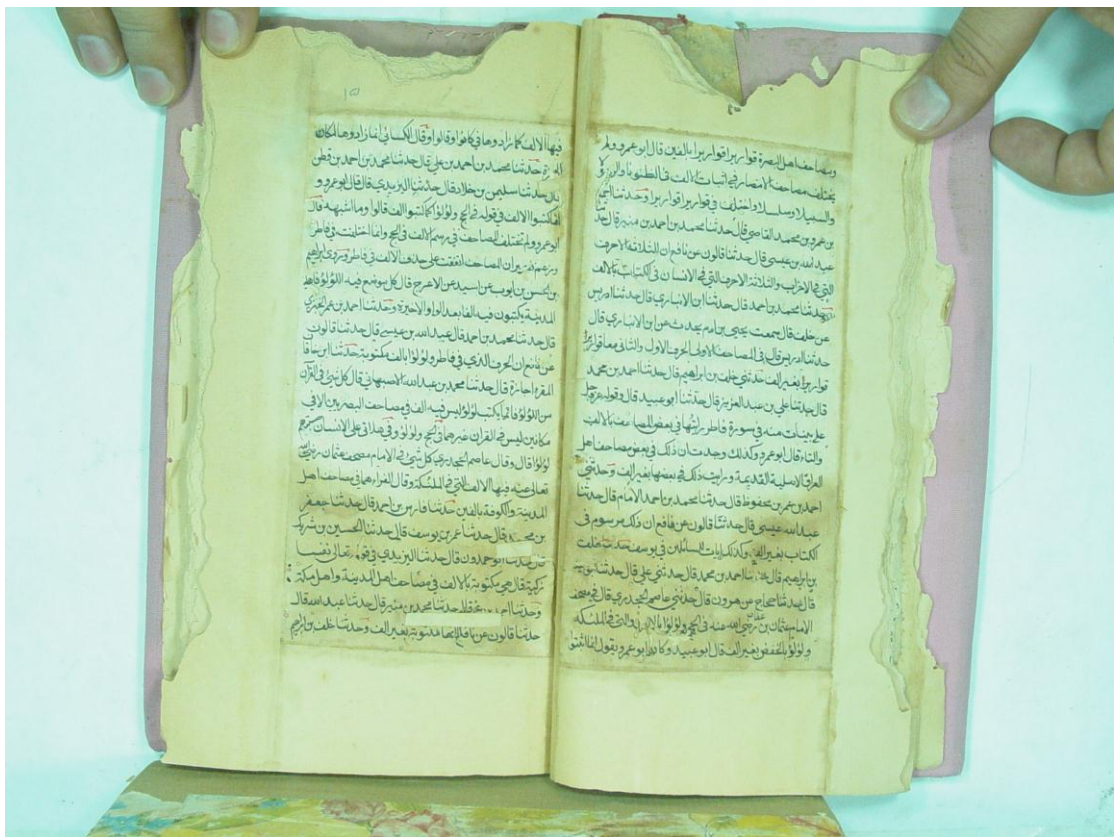 ومصاحف اهل البصرة قواريرا قواريرا بالفين قال ابو عمرو ولم
يختلف مصاحف الامصار في اثبات الالف في الظنونا والرسولا
والسبيلا وسلسلا واختلف في قواريرا قواريرا وحدثنا احمد
بن عمرو بن محمد القاضي قال حدثنا محمد بن احمد بن منير قال حدثنا
عبد الله بن عيسى قال حدثنا قالون عن نافع ان الثلاثة الاحرف
التي في الاحزاب والثلاثة الاحرف التي في الانسان في الكتاب بالالف
حدثنا محمد بن احمد قال حدثنا ابن الانباري قال حدثنا ادريس
عن خلف قال سمعت يحيى بن ادم يحدث عن ابن
حدثنا ادريس قال في المصاحف الاولى الحرف الاول والثاني معا قواريرا
قواريرا بغير الف حدثني خلف بن ابراهيم قال حدثنا احمد بن محمد
قال حدثنا علي بن عبد العزيز قال حدثنا ابو عبيد قال وقوله عز وجل
على بينات منه في سورة فاطر رايتها في بعض المصاحف بالالف
والتاء قال ابو عمرو وكذلك وجدت ان ذلك في بعض مصاحف اهل
العراق الاصلية القديمة ورايت ذلك في بعضها بغير الف وحدثني
احمد بن عمر بن محفوظ قال حدثنا محمد بن احمد الامام قال حدثنا
عبد الله عيسى قال حدثنا قالون عن نافع ان ذلك مرسوم في
الكتاب بغير الف وكذلك ايات السائلين في يوسف حدثنا خلف
بن ابراهيم قال حدثنا احمد بن محمد قال حدثني علي قال حدثنا
قال حدثنا حجاج عن هرون قال حدثني عاصم الجحدري قال في مصحف
الامام عثمان بن عفان رضي الله عنه في الحج ولؤلؤا بالالف والتي في الملئكة
ولؤلؤ بالخفض بغير الف قال ابو عبيد وكان ابو عمرو يقول انما اثبتوا
فيها الالف كما زادوها في كانوا وقالوا وقال الكسائي انما زادوها لمكان
الهمزة حدثنا محمد بن احمد بن علي قال حدثنا محمد بن احمد بن قطن
قال حدثنا سليمن بن خلاد قال حدثنا اليزيدي قال قال ابو عمرو و
انما كتبوا الالف في قوله في الحج ولؤلؤا كما كتبوا الف قالوا وما اشبهه قال
ابو عمرو ولم تختلف المصاحف في رسم الالف في الحج وانما اختلفت في فاطر
وزعم ان المصاحف اتفقت على حذف الالف في فاطر وروى ابراهيم
بن الحسن بن ايوب عن اسيد عن الاعرج قال كل موضع فيه اللؤلؤ فاهل
المدينة يكتبون فيه الفا بعد الواو الاخيرة وحدثنا احمد بن عمر الجيزي
قال حدثنا محمد بن احمد قال عبد الله بن عيسى قال حدثنا قالون
عن نافع ان الحرف الذي في فاطر ولؤلؤا بالف مكتوبة حدثنا ابن خاقان
المقرء اجازة قال حدثنا محمد بن عبد الله الاصبهاني قال كل شيء في القرآن
من اللؤلؤ فانما يكتب لؤلؤ ليس فيه الف في مصاحف البصريين الا في
مكانين ليس في القران غيرهما في الحج ولؤلؤا وفي هل اتى على الانسان حسبتهم
لؤلؤا قال وقال عاصم الجحدري كل شيء في الامام مصحف عثمان رضي الله
تعالى عنه فيها الالف التي في الملئكة وقال الفراء هما في مصاحف اهل
المدينة والكوفة بالفين حدثنا فارس بن احمد قال حدثنا جعفر
بن محمد قال حدثنا عمر بن يوسف قال حدثنا الحسين بن شريك
قال حدثنا ابو حمدون قال حدثنا اليزيدي في قوله تعالى نفسا
زكية قال هي مكتوبة بالالف في مصاحف اهل المدينة واهل مكة
وحدثنا احمد قال حدثنا محمد بن منير قال حدثنا عبد الله قال
حدثنا قالون عن نافع انها مكتوبة بغير الف وحدثنا خلف بن ابراهيم